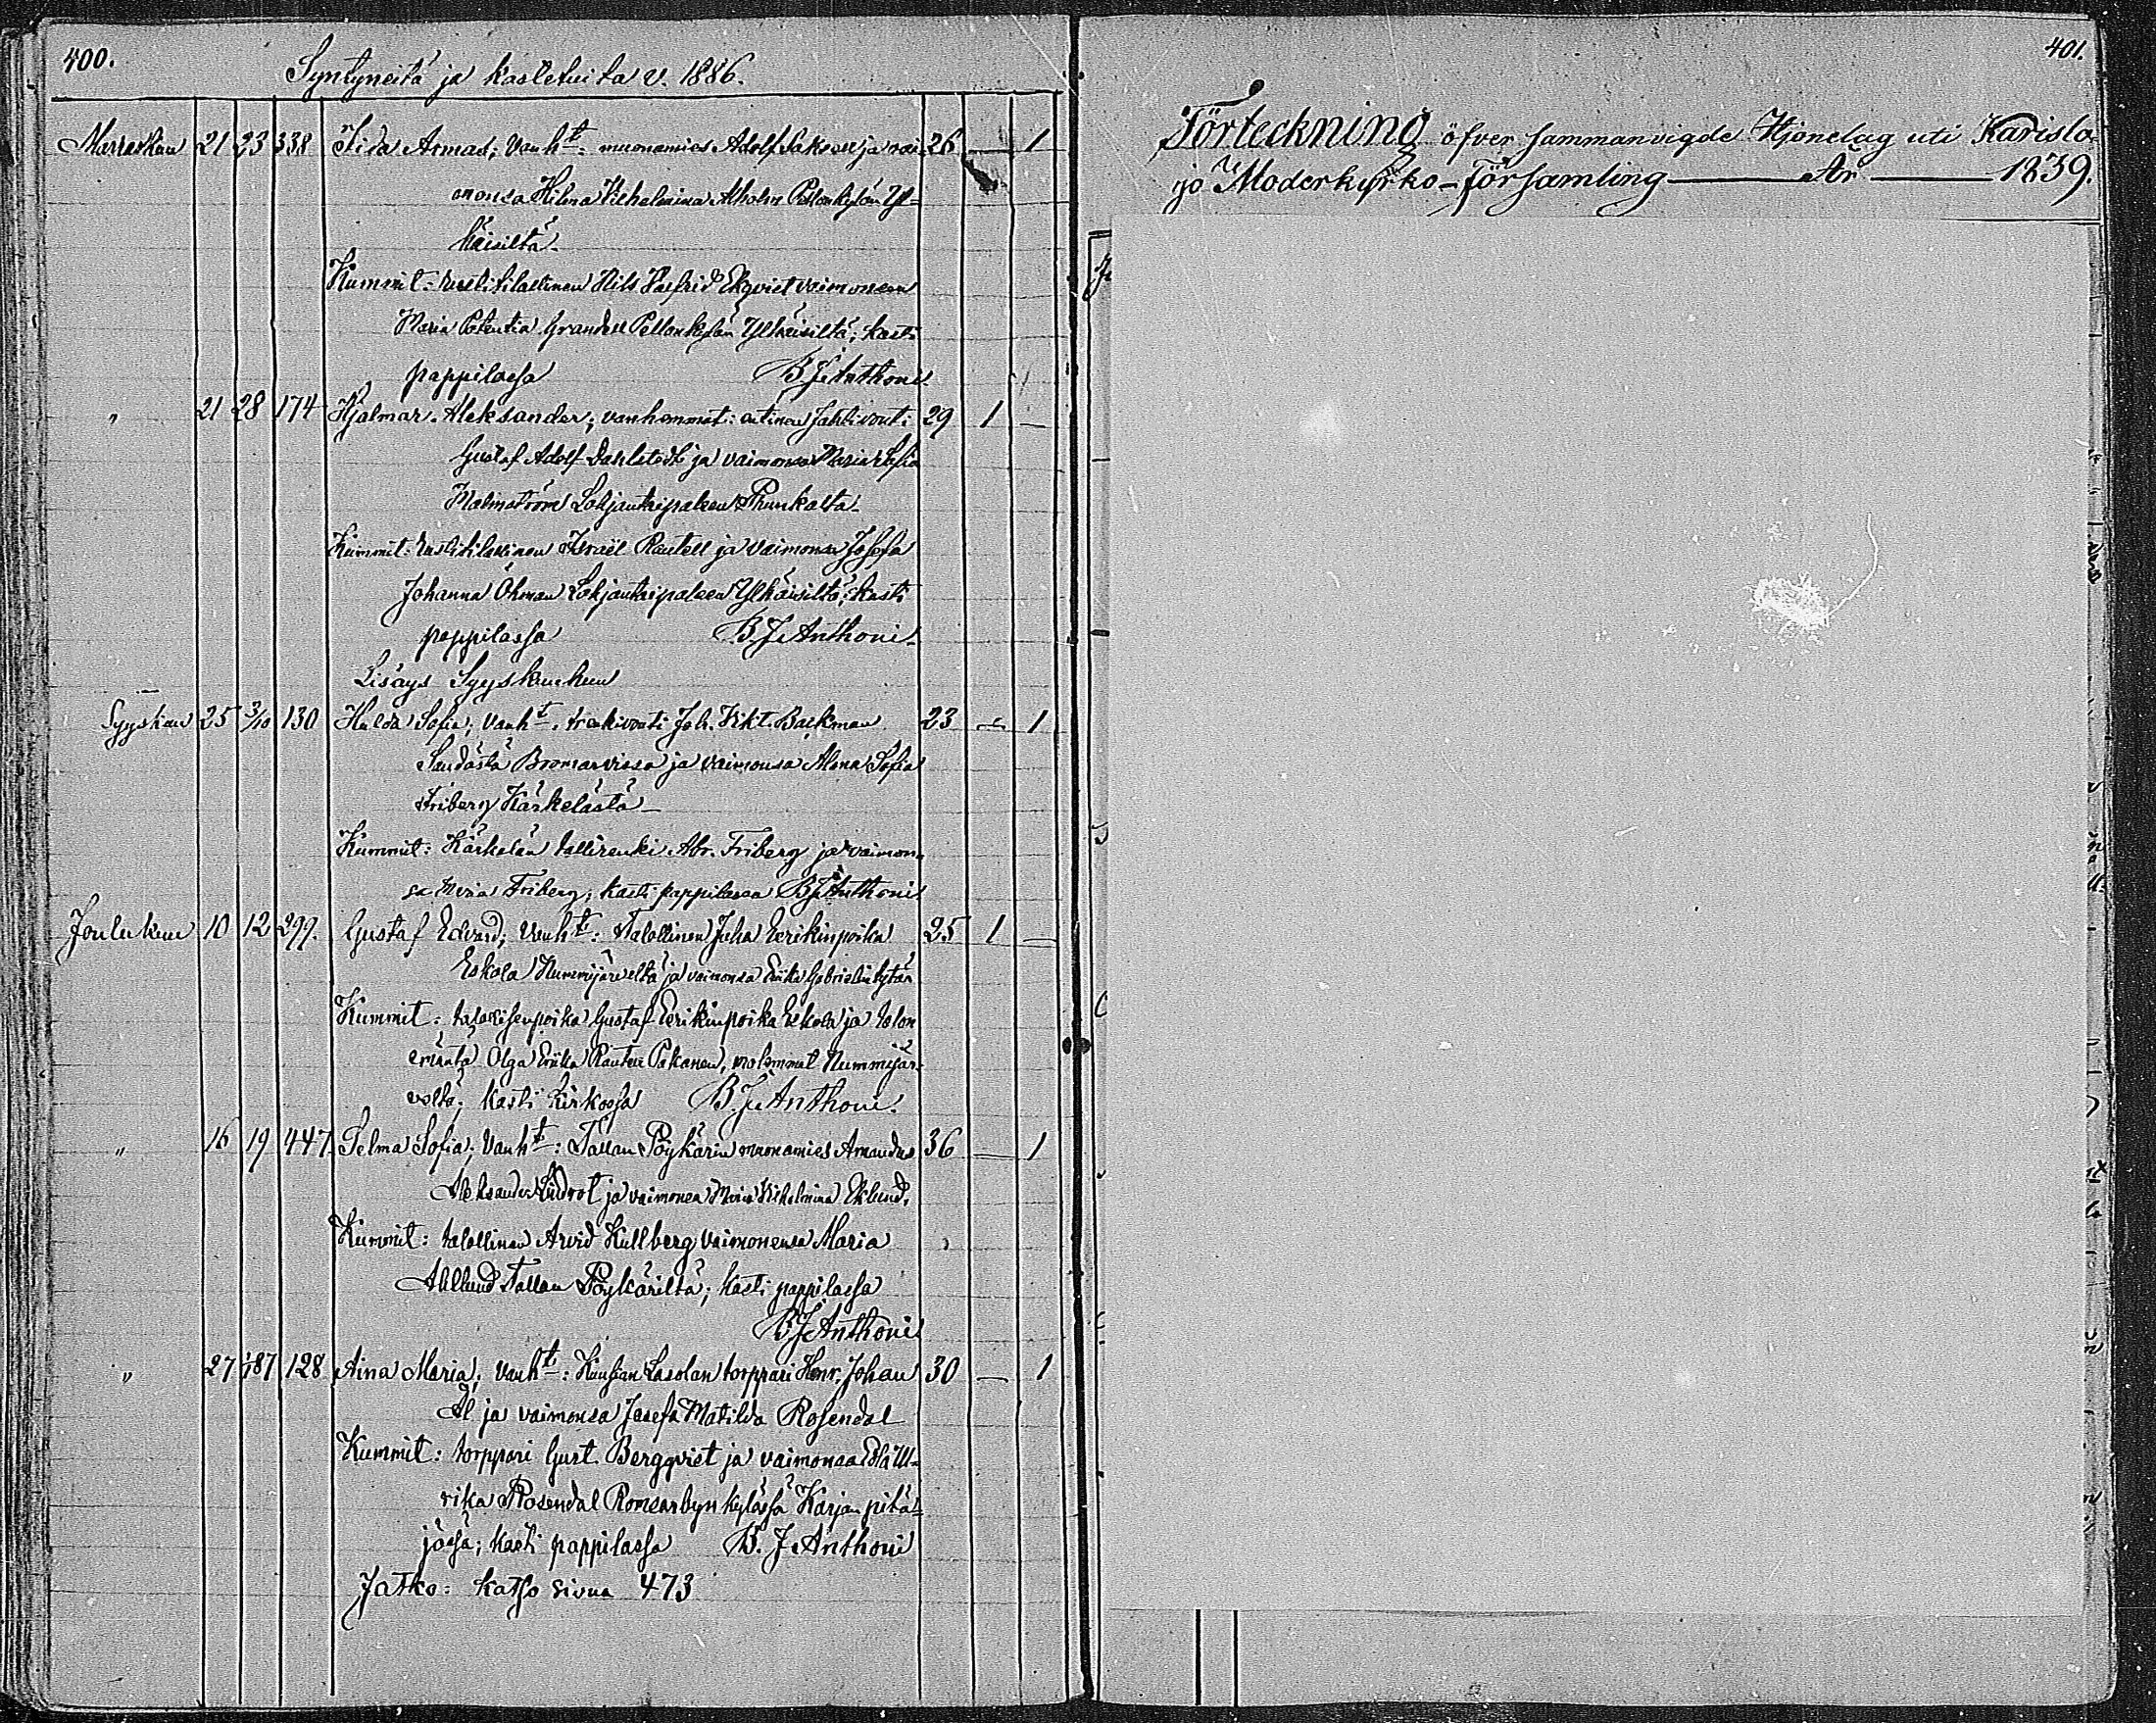 400.
Syntyneitä ja kastetuita v. 1886.
Marraskuu 21 23 338 Armas; Vanht: muonamies Adolf ja vai 26 — 1
monsa Hilma Vilhelmina Ahlholm Pellonkylän Yl-
käisiltä.
Kummit: Nils Ekqvist vaimoneen
Maria Grandell Pellonkylän Ylhäisiltä; kasti
pappilassa B. J. Anthoni
" 21 28 174 Hjalmar Aleksander; vanhemmat: entinen 29 1 —
Gustaf Adolf Dahlstedt ja vaimonsa Maria Sofia
Malmström Lohjantaipaleen Prunkalta.
Kummit: Israël Rautell ja vaimonsa Josefa
Johanna Öhman Lohjantaipaleen Ylhäisiltä; kasti
pappilassa B. J. Anthoni
Lisäys Syyskuuhun
Syyskuu 25 3/10 130 Hulda Sofia; Vanht: Joh. Vikt. Backman 23 — 1
Bromarvissa ja vaimonsa Alma Sofia
Friberg Kärkelästä
Kummit: Kärkelän tallirenki Abr. Friberg ja vaimon-
sa Maria Friberg; kasti pappilassa B. J. Anthoni
Joulukuu 10 12 299. Gustaf Edvard; Vanht: Talollinen Juha Eerikinpoika 25 1 —
Eskola Nummijärveltä ja vaimonsa Eriika Gabrielintytär
Kummit: talollisenpoika Gustaf Eerikinpoika Eskola ja talon
emäntä Olga Eriika Pakanen, molemmat Nummijär-
veltä; kasti kirkossa B. J. Anthoni.
" 16 19 447. Selma Sofia; Vanht: Tallaan Pöykärin muonamies Amandus 36 — 1
Aleksander Lindrot ja vaimonsa Maria Vilhelmina Eklund.
Kummit: talollinen Arvid Kullberg vaimonensa Maria
Ahllund Tallaan Pöykäriltä; kasti pappilassa
B. J. Anthoni
" 27 1/1 87 128 Aina Maria; Vanht: Kuusian Lasolan torppari Henr. Johan 30 — 1
Al ja vaimonsa Josefa Matilda Rosendal
Kummit: torppari Gust. Bergqvist ja vaimonsa Edla Ul-
rika Rosendal Romsarbyn kylässä Karjan pitä-
jässä; kasti pappilassa B. J. Anthoni
Jatko: katso sivua 473
401.
Förteckning öfver sammanvigde Hjonelag uti Karislo-
jo Moderkyrko-Församling — År — 1839.